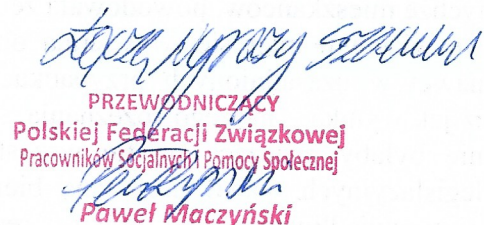 Łączę wyrazy szacunku
PRZEWODNICZĄCY
Polskiej Federacji Związkowej
Pracowników Socjalnych i Pomocy Społecznej
Paweł Maczyński